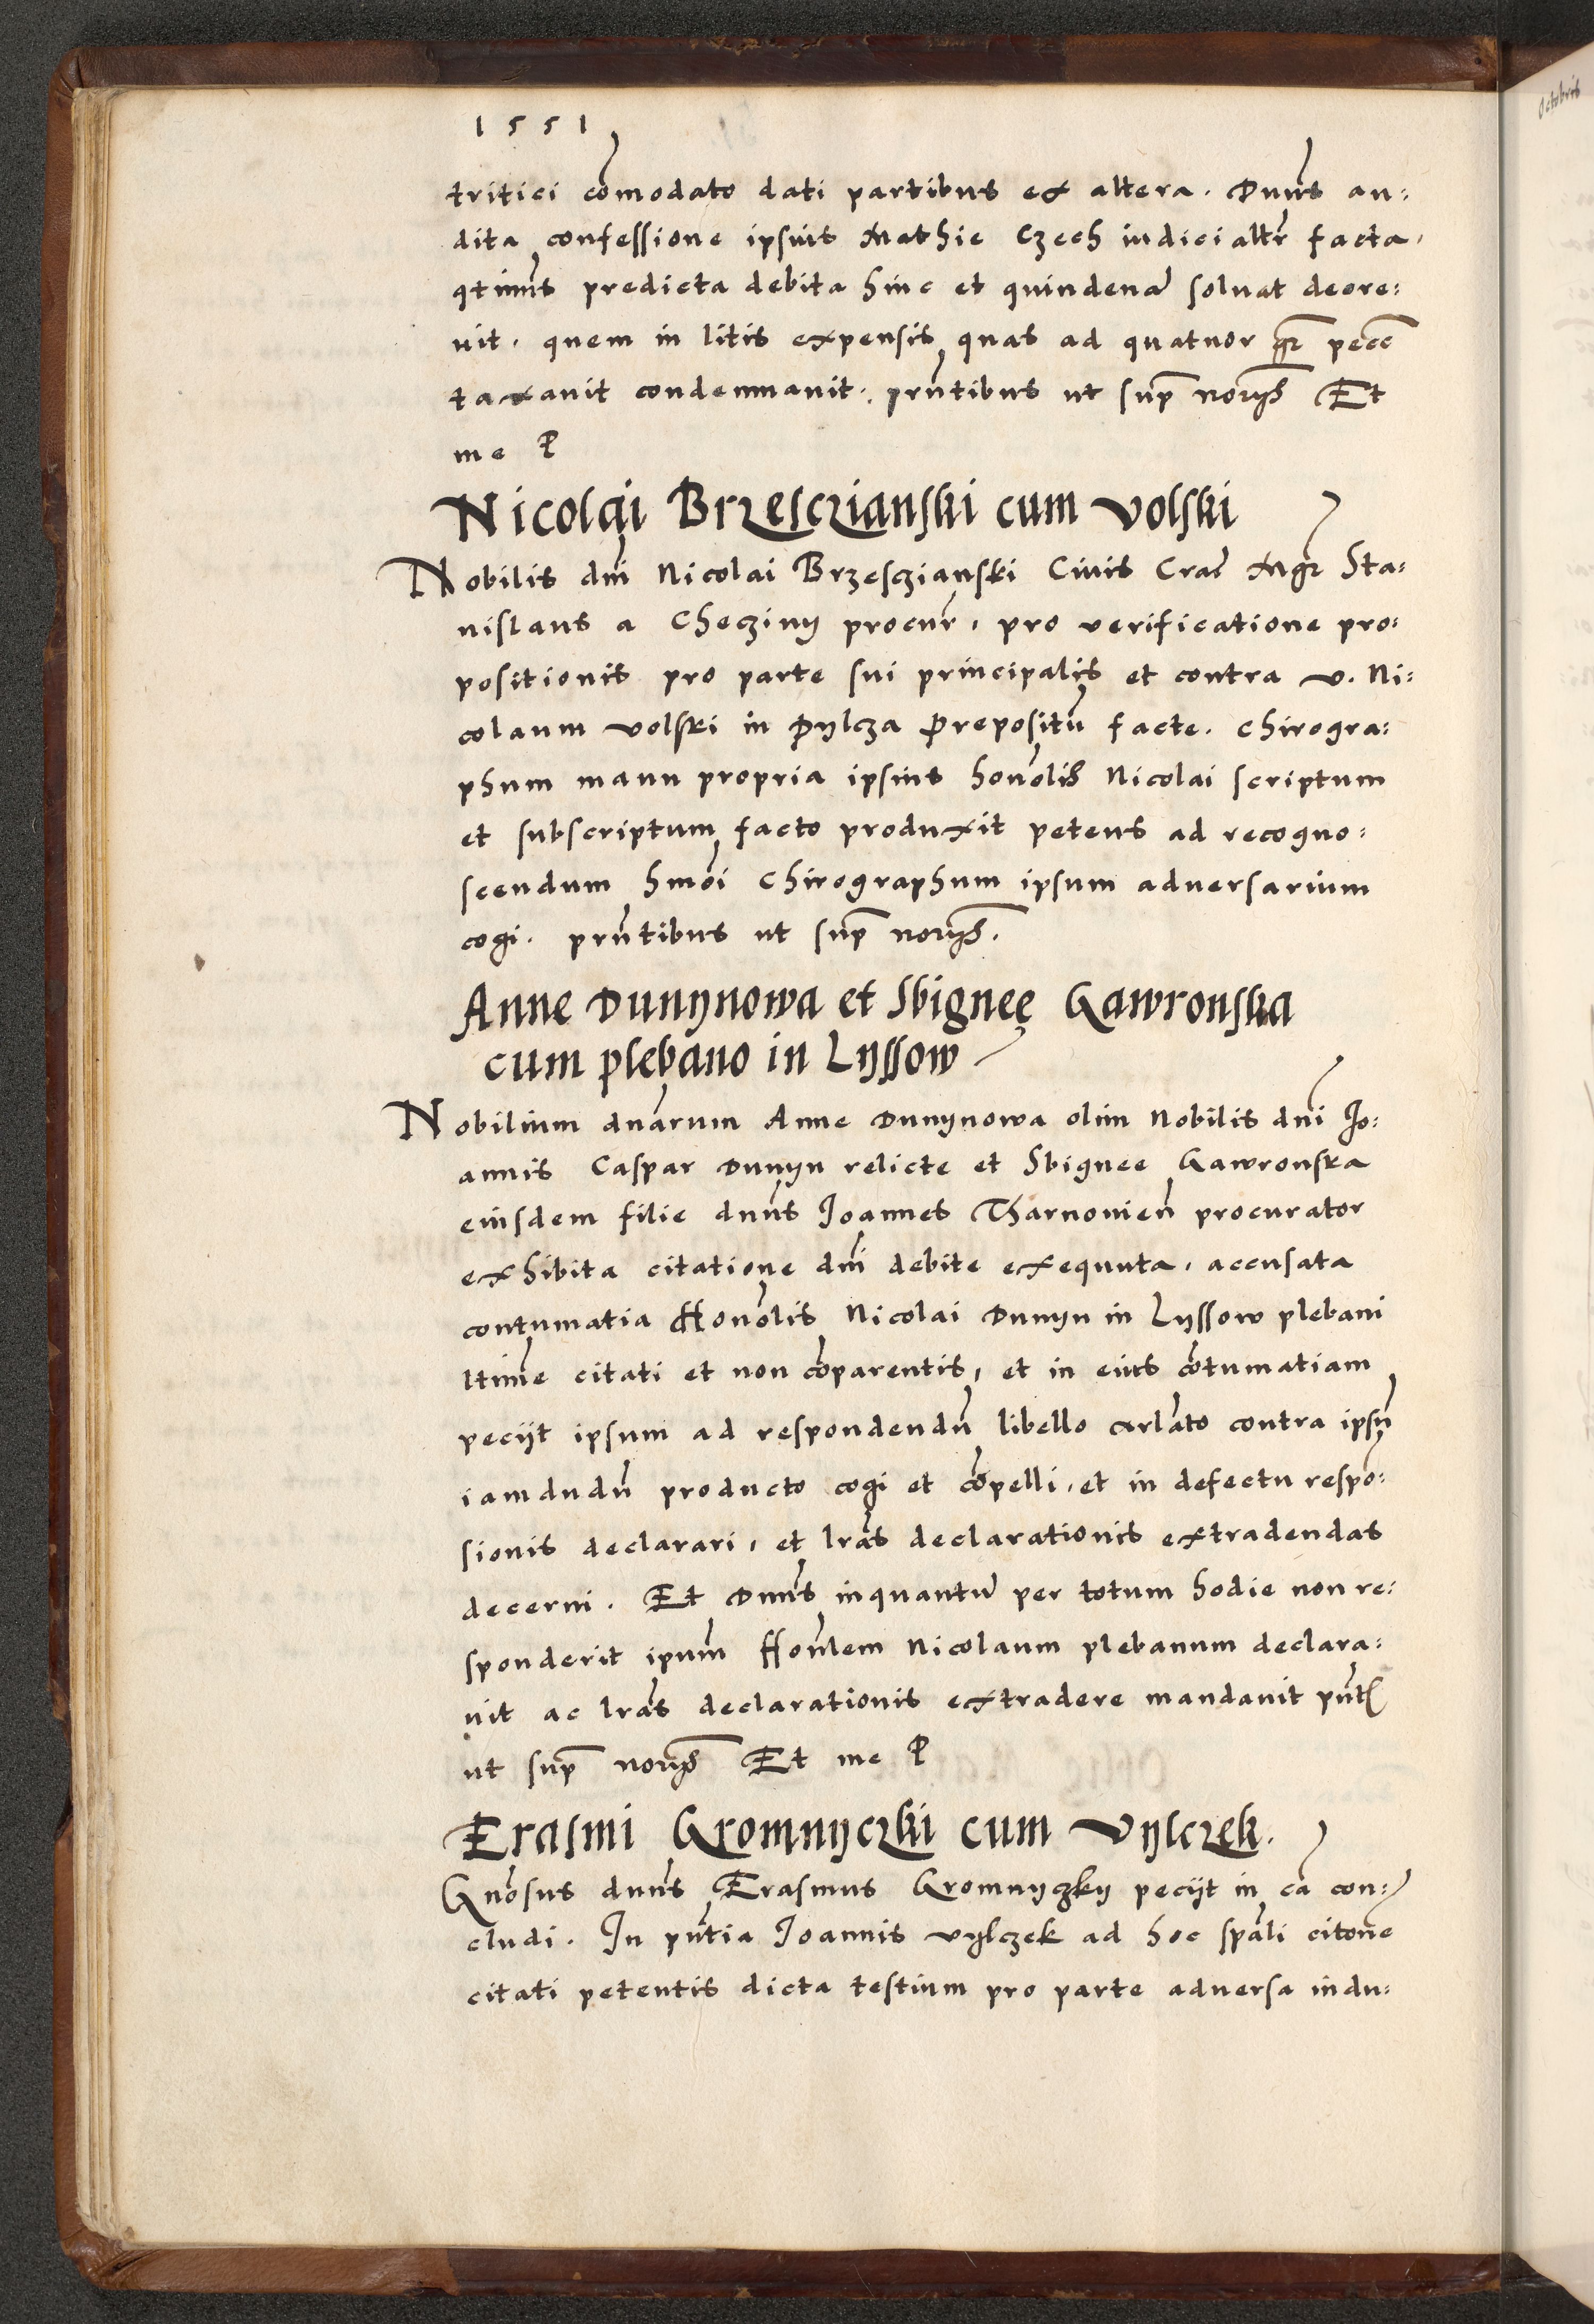 1551
tritici cōmodato dati partibus ex altera. Dnūs au:
dita confessione ipsius Mathie Czech iudicialtr̄ facta,
qtinūs predicta debita hinc et quindenā soluat decre:
uit. quem in litis expensis quas ad quatuor gr̄ pecc̄
taxauit condemnauit. pn̄tibus ut sup̄ nor̄ys Et
me P
Nicolai Brzesczianski cum Volski
Nobilis dnī Nicolai Brzesczianski Ciuis Crac̄ Mgr̄ Sta:
nislaus a Checziny procur̄, pro verificatione pro:
positionis pro parte sui principalis et contra v. Ni:
colaum Volski in Pylcza Prepositū facte. chirogra:
phum manu propria ipsius honōlis Nicolai scriptum
et subscriptum facto produxit petens ad recogno:
scendum hmōi chirographum ipsum aduersarium
cogi. prn̄tibus ut sup̄ nor̄ys.
Anne Dunynowa et Sbignee Gawronska
cum plebano in Lyssow
Nobilium dnārum Anne Dunynowa olim Nobilis dnī Jo:
annis Caspar Dunyn relicte et Sbignee Gawronska
eiusdem filie dnūs Joannes Tharnouien̄ procurator
exhibita citatione dnī debite exequuta, accusata
contumatia Honōlis Nicolai Dunyn in Lyssow plebani
ltime citati et non cōparentis, et in eius cōtumatiam
peciit ipsum ad respondendū libello arlāto contra ipsū
iamdudū producto cogi et cōpelli, et in defectu respō:
sionis declarari, et lrās declarationis extradendas
decerni. Et Dnūs inquantū per totum hodie non re:
sponderit ipum̄ Honl̄em Nicolaum plebanum declara:
uit ac lrās declarationis extradere mandauit pn̄t
ut sup̄ nor̄ys Et me P
Erasmi Gromnyczki cum Vylczek.
Gnōsus dnūs Erasmus Gromnyczky peciit in cā con:
cludi. In pn̄tia Joannis Vylczek ad hoc spāli citone
citati petentis dicta testium pro parte aduersa indu:
Octobris